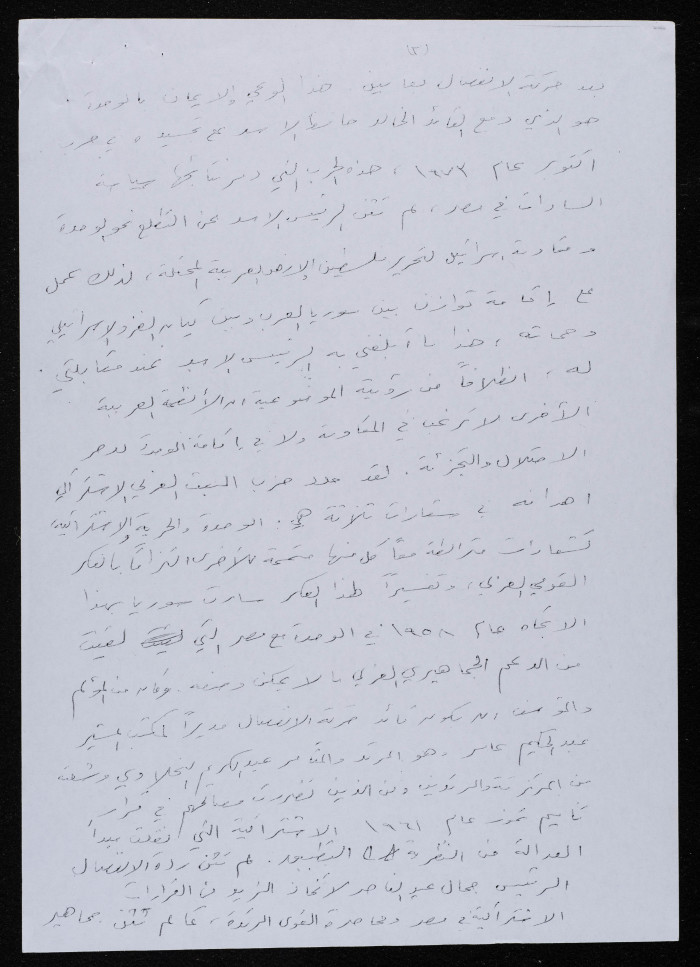 (٢)
بعد حركة الانفصال بعامين. هذا الوعي والايمان بالوحدة
هو الذي دفع القائد الخالد حافظ الاسد مع تجسيده في حرب
اكتوبر عام ١٩٧٣، هذه الحرب التي دمر نتائجها سياسة
السادات في مصر، لم تثن الرئيس الاسد عن التطلع نحو الوحدة
ومقاومة اسرائيل لتحرير فلسطين والارض العربية المحتلة، لذلك عمل
على إقامة توازن بين سوريا العرب وبين كيان الغزو الاسرائيلي
وحماته، هذا ما أبلغني به الرئيس الاسد عند مقابلتي
له، انطلاقاً من رؤيته الموضوعية ان الأنظمة العربية
الأخرى لا ترغب في المقاومة ولا في إقامة الوحدة لدحر
الاحتلال والتجزئة. لقد حدد حزب البعث العربي الاشتراكي
اهدافه في شعارات ثلاثة هي: الوحدة والحرية والاشتراكية،
كشعارات مترابطة معاً كل منها متممة للأخرى التزاماً بالفكر
القومي العربي، وتفسيراً لهذا الفكر سارت سوريا بهذا
الاتجاه عام ١٩٥٨ في الوحدة مع مصر التي لقيت
من الدعم الجماهيري العربي ما لا يمكن وصفه. وكان من المؤلم
والمؤسف ان يكون قائد حركة الانفصال مديراً لمكتب المشير
عبد الحكيم عامر، وهو المرتد والمتآمر عبد الكريم النحلاوي وشلته
من المرتزقة والمرتدين ومن الذين تضررت مصالحهم في قرارات
تأميم تموز عام ١٩٦١ الاشتراكية التي نقلت مبدأ
العدالة من النظرية الى التطبيق. لم تثن ردة الانفصال
الرئيس جمال عبد الناصر لاتخاذ المزيد من القرارات
الاشتراكية في مصر ومحاصرة القوى المرتدة، كما لم تثن جماهير